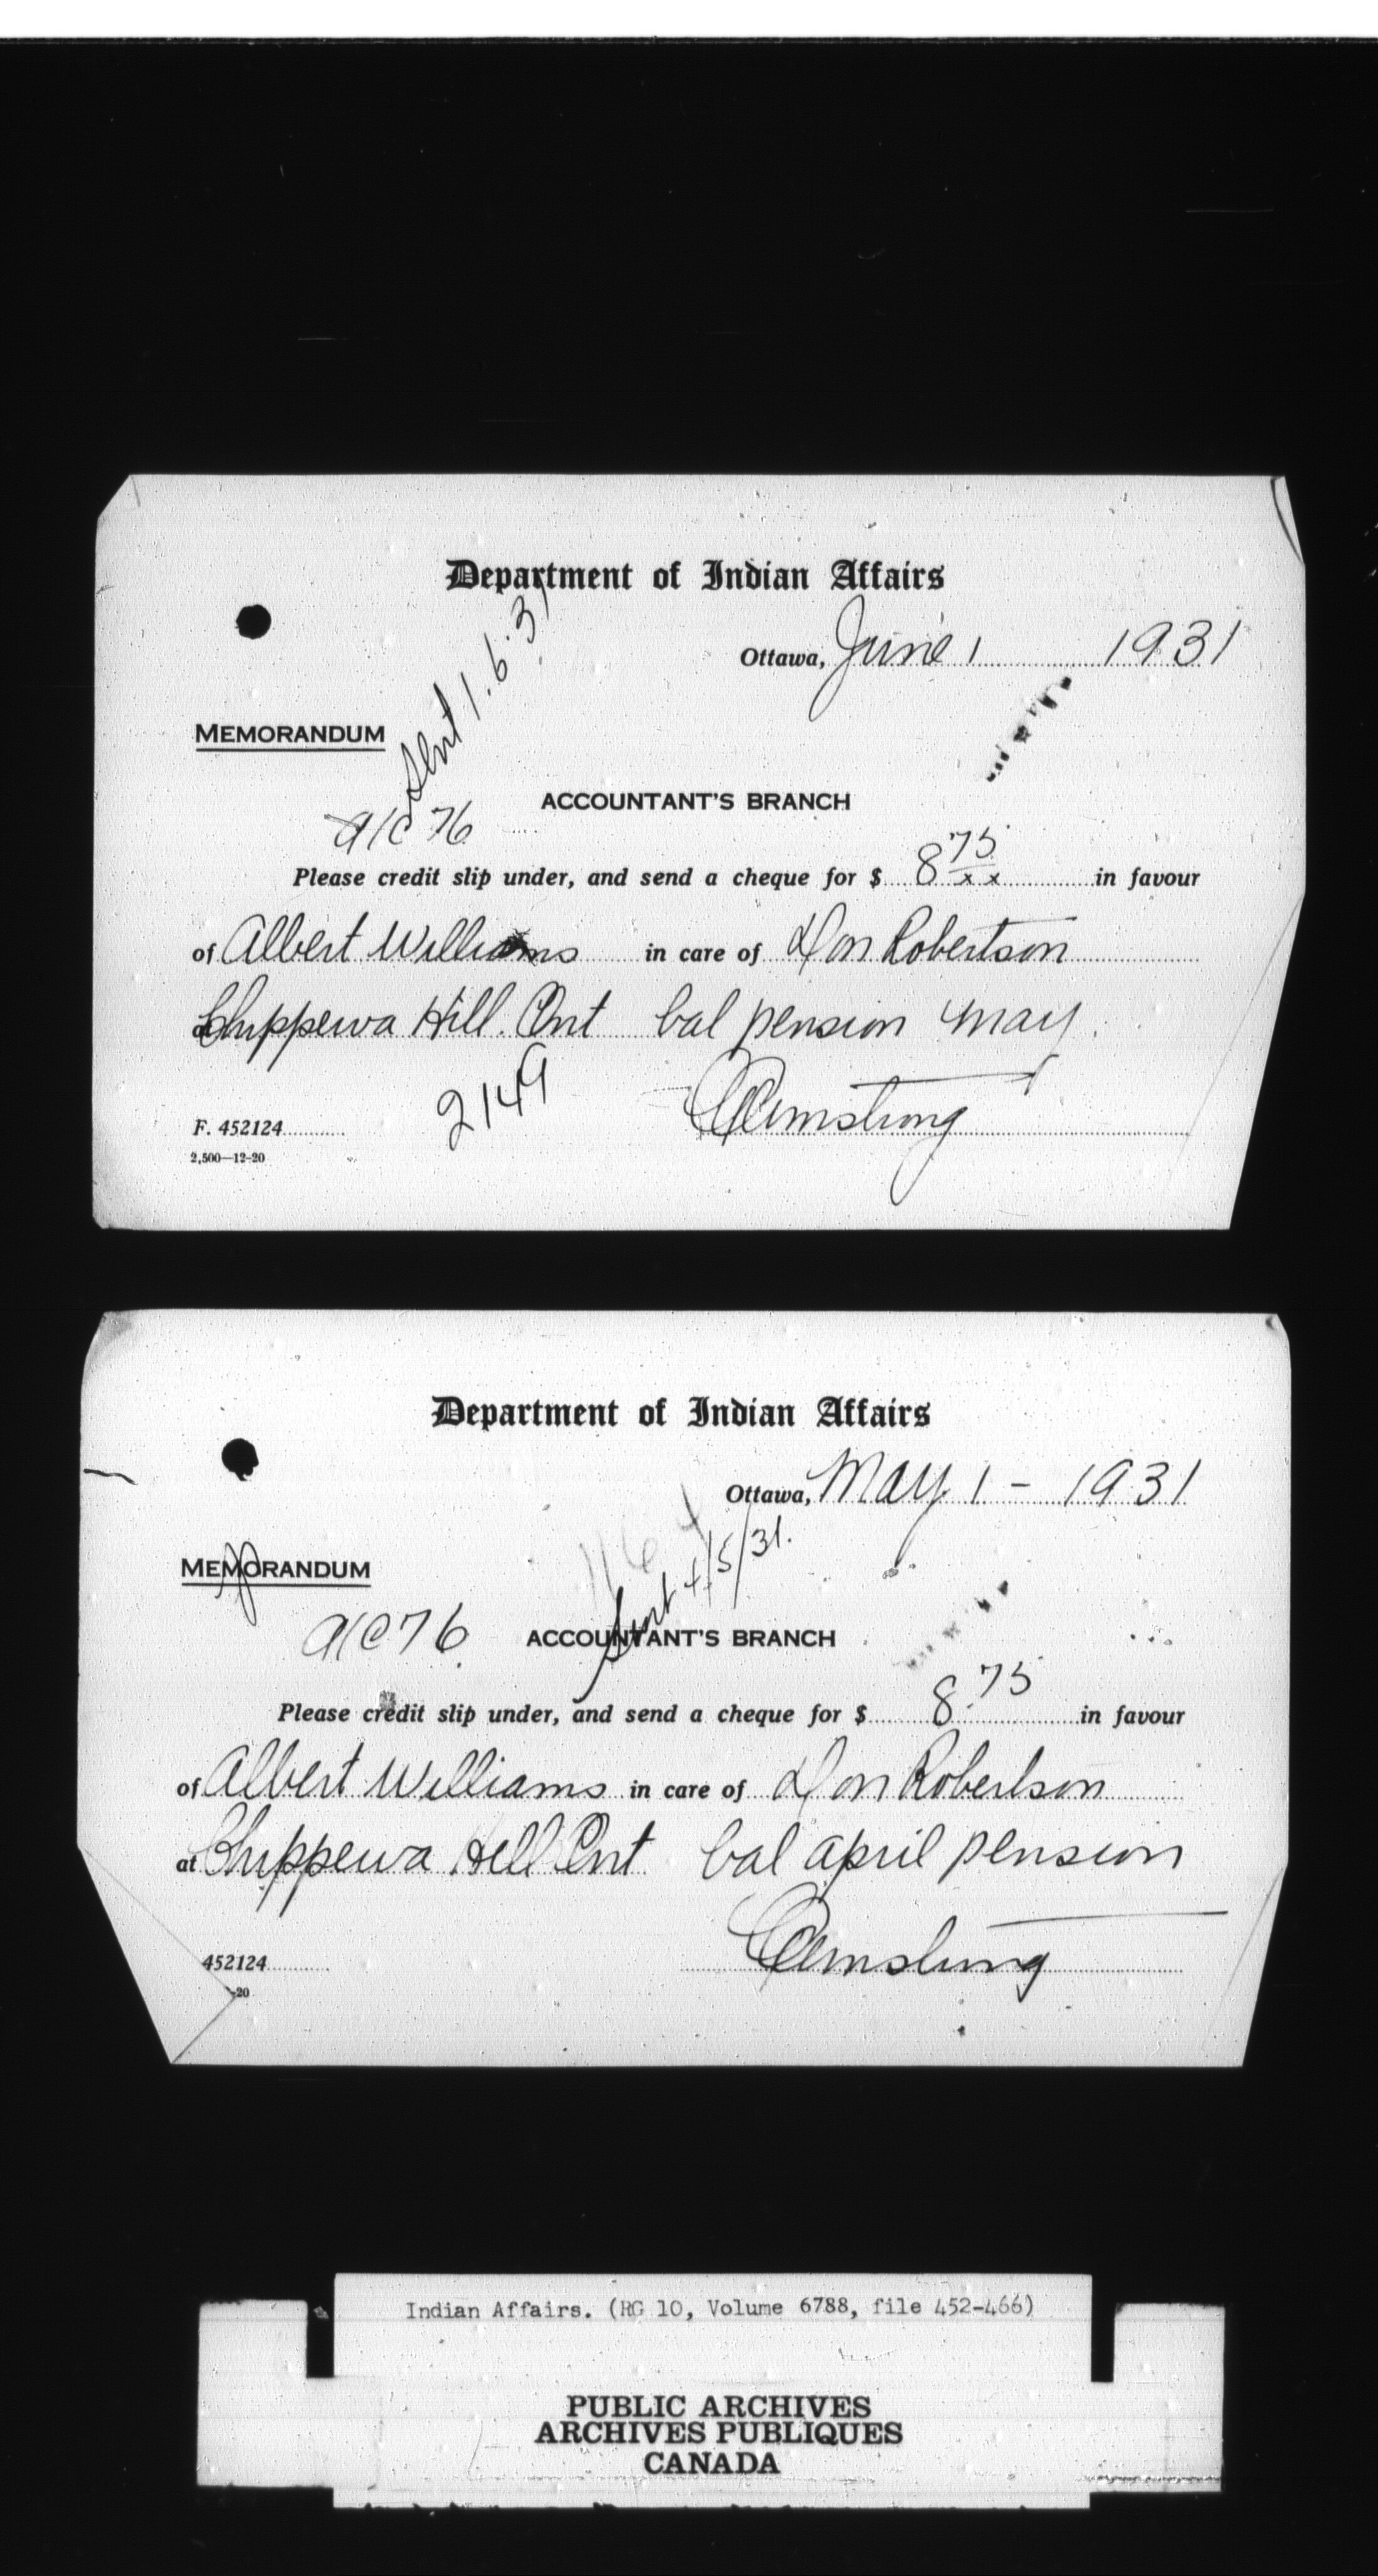 Department of Indian Affairs
Ottawa, June 1 1931
Sent 1.6.31
MEMORANDUM
ACCOUNTANT'S BRANCH
a/c 76
Please credit slip under, and send a cheque for $ 8 75/xx in favour
of Albert Williams in care of Don Robertson
at Chippewa Hill. Ont bal pension May.
2149
Armstrong
F. 452124
2,500—12-20
Department of Indian Affairs
Ottawa, May 1 - 1931
Sent 4/5/31.
MEMORANDUM
a/c 76
ACCOUNTANT'S BRANCH
Please credit slip under, and send a cheque for $ 8.75 in favour
of Albert Williams in care of Don Robertson
at Chippewa Hill Ont bal april pension
Armstrong
452124
-20
Indian Affairs. (RG 10, Volume 6788, file 452-466)
PUBLIC ARCHIVES
ARCHIVES PUBLIQUES
CANADA